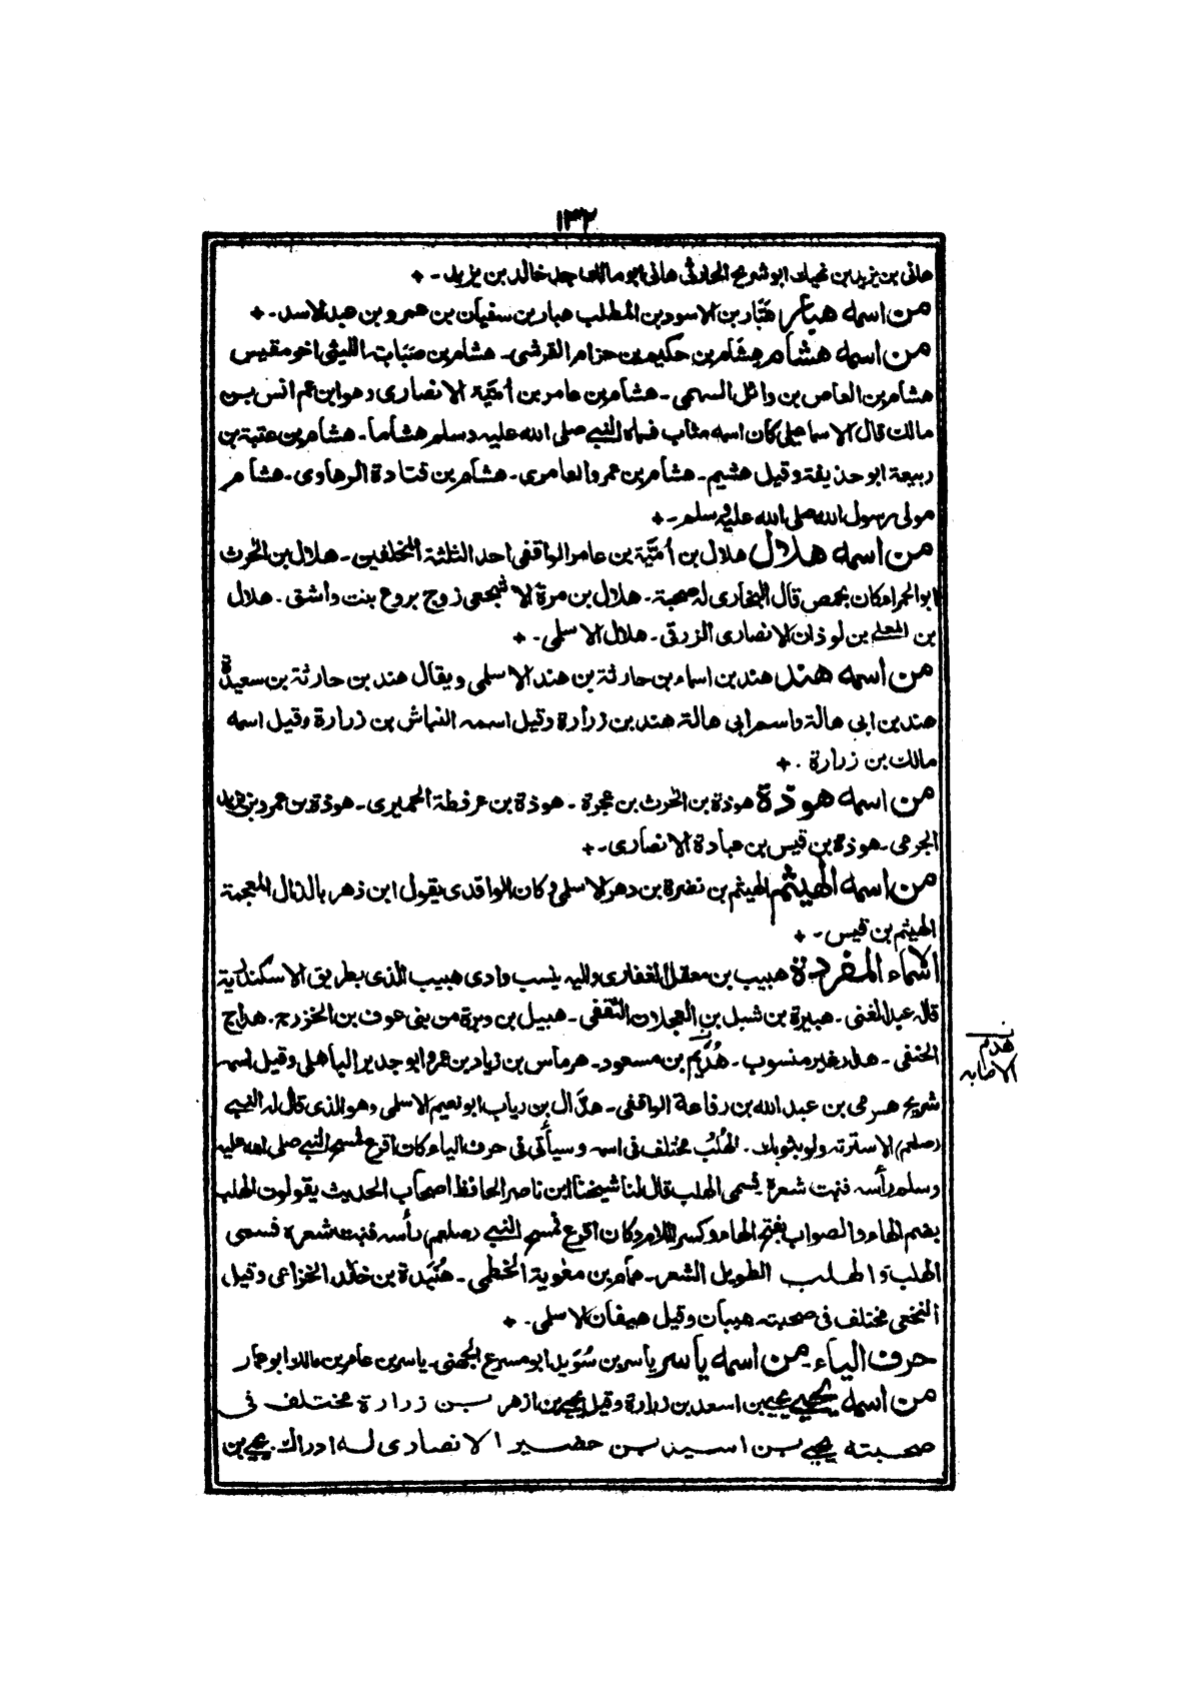 ١٣٢
هانى بن يزيد بن نهيك ابو شريح الحارثى هانى ابو مالك جد خالد بن يزيد -
من اسمه هبار هَبّار بن الاسود بن المطلب هبار بن سفيان بن عمرو بن عبد الاسد -
من اسمه هشام هِشَام بن حكيم بن حزام القرشى - هشام بن صبابة الليثى اخو مقيس
هشام بن العاص بن وائل السهمى - هشام بن عامر بن أميّة الانصارى وهو ابن عم انس بن
مالك قال الاسماعيلى كان اسمه شهاب فسماه النبى صلى الله عليه وسلم هشاما - هشام بن عتبة بن
ربيعة ابو حذيفة وقيل هشيم - هشام بن عمرو العامرى - هشام بن قتادة الرهاوى - هشام
مولى رسول الله صلى الله عليه وسلم -
من اسمه هلال هلال بن أميّة بن عامر الواقفى احد الثلثة المخلفين - هلال بن الحرث
ابو الحمراء كان بحمص قال البخارى له صحبة - هلال بن مرة الاشجعى زوج بروع بنت واشق - هلال
بن المعلى بن لوذان الانصارى الزرقى - هلال الاسلمى -
من اسمه هند هند بن اسماء بن حارثة بن هند الاسلمى ويقال هند بن حارثة بن سعيدة
هند بن ابى هالة واسم ابى هالة هند بن زرارة وقيل اسمه النباش بن زرارة وقيل اسمه
مالك بن زرارة .
من اسمه هوذة هوذة بن الحرث بن عجرة - هوذة بن عرفطة الحميرى - هوذة بن عمرو بن يزيد
الجرمى - هوذة بن قيس بن عبادة الانصارى -
من اسمه الهيثم الهيثم بن نضرة بن دهر الاسلمى وكان الواقدى يقول ابن ذهر بالذال المعجمة
الهيثم بن قيس -
الاسماء المفردة هبيب بن مغفل الغفارى واليه ينسب وادى هبيب الذى بطريق الاسكندرية
قاله عبد الغنى - هبيرة بن شبل بن العجلان الثقفى - هبيل بن وبرة من بنى عوف بن الخزرج - هداج
الحنفى - هدار غير منسوب - هُدَيْم بن مسعود - هرماس بن زياد بن عمرو ابو جدير الباهلى وقيل اسمه
هدم
الاصابه
شريح هرمى بن عبد الله بن رفاعة الواقفى - هزّال بن رياب ابو نعيم الاسلمى وهو الذى قال له النبى
(صلعم) الاسترته ولو بثوبك - الهُلْبُ مختلف فى اسمه وسيأتى فى حرف الياء كان اقرع فمسح النبى صلى الله عليه
وسلم رأسه فنبت شعره فسمى الهلب قال لنا شيخنا ابن ناصر الحافظ اصحاب الحديث يقولون الهلب
بضم الهاء والصواب بفتح الهاء وكسر اللام وكان اقرع فمسح النبى (صلعم) رأسه فنبت شعره فسمى
الهلب والهلب الطويل الشعر - همام بن معوية الخطمى - هُنَيْدة بن خالد الخزاعى وقيل
النخعى مختلف فى صحبته هيبان وقيل هيفان الاسلمى -
حرف الياء - من اسمه ياسر ياسر بن سُوَيد ابو مسرع الجهنى - ياسر بن عامر بن مالك ابو عمار
من اسمه يحيى يحيى بن اسعد بن زرارة وقيل يحيى بن ازهر بن زرارة مختلف فى
صحبته يحيى بن اسيد بن حضير الانصارى له ادراك . يحيى بن